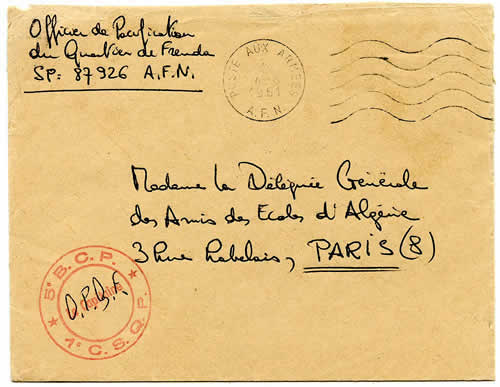 Officier de Pacification
du Quartier de Frenda
SP: 87926 A.F.N.
POSTE AUX ARMÉES
1961
A.F.N.
Madame la Déléguée Générale
des Amis des Ecoles d'Algérie
3 Rue Rabelais, PARIS (8)
5e B.C.P.
Le Capitaine
O.P.B.F.
1e C.S.Q.P.